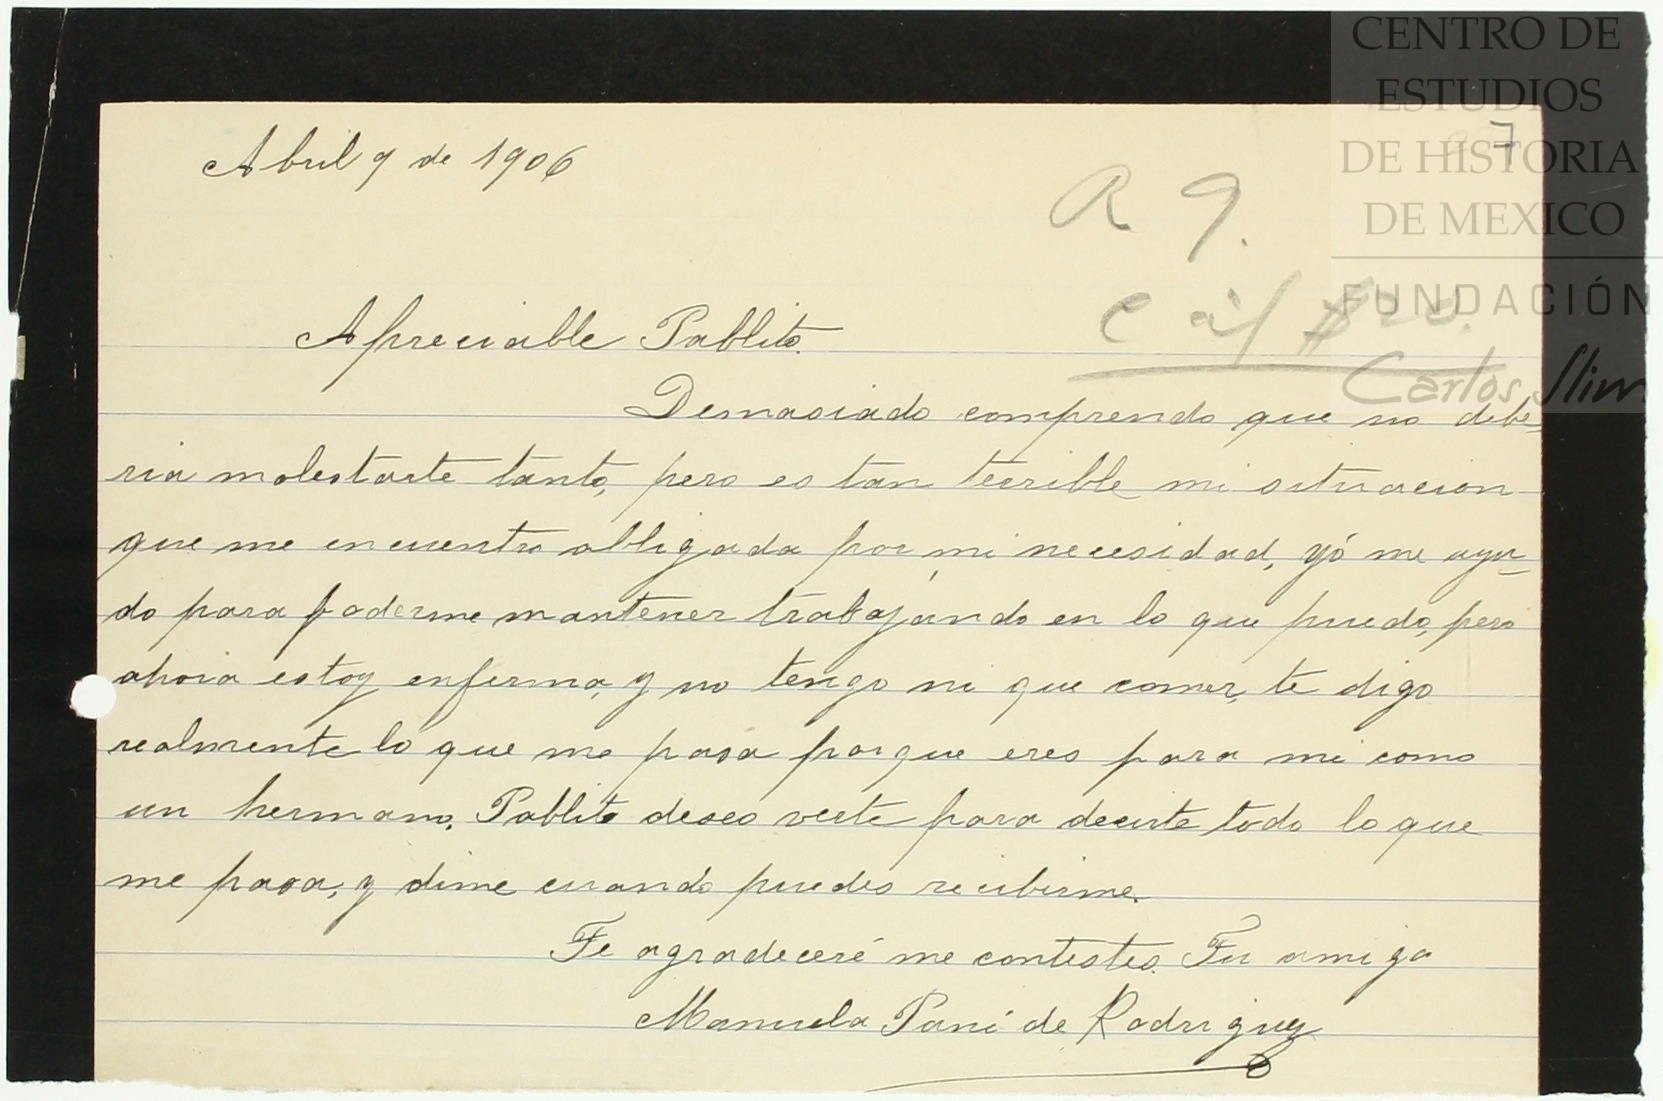 CENTRO DE
ESTUDIOS
DE HISTORIA
DE MEXICO
FUNDACIÓN
Carlos Slim
7
Abril 9 de 1906
R 9.
Apreciable Pablito.
Demasiado comprendo que no debe-
ria molestarte tanto, pero es tan terrible mi situacion
que me encuentro obligada por mi necesidad, yó me ayu-
do para poderme mantener trabajando en lo que puedo, pero
ahora estoy enferma, y no tengo ni que comer, te digo
realmente lo que me pasa porque eres para mi como
un hermano. Pablito deseo verte para decirte todo lo que
me pasa, y dime cuando puedes recibirme.
Te agradeceré me contestes. Tu amiga
Manuela Pani de Rodriguez